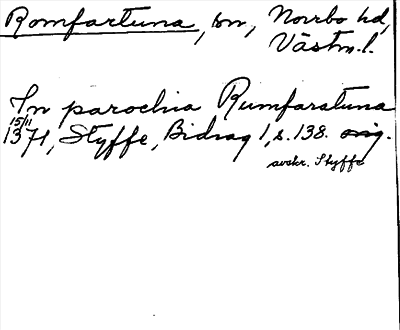 Romfartuna, sn, Norrbo hd,
Västm.l.
In parochia Rumfaratuna
15/11
1371, Styffe, Bidrag 1, s. 138. orig.
avskr. Styffe